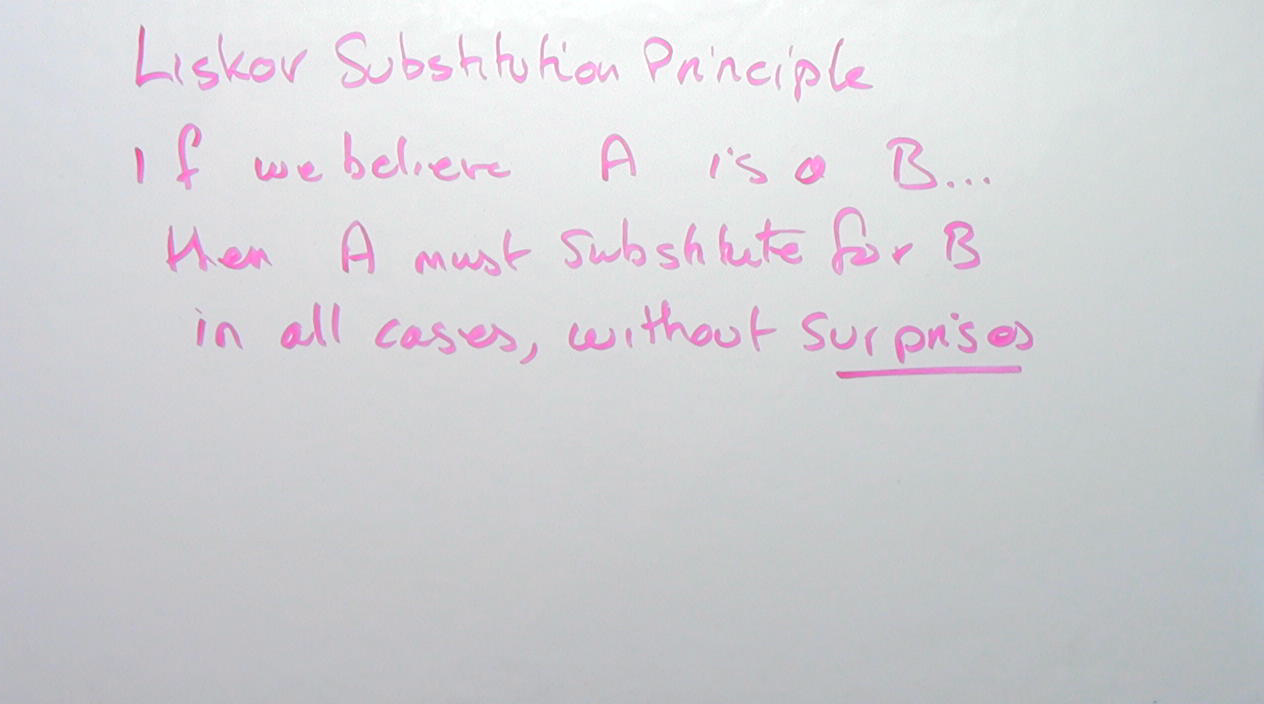 Liskov Substitution Principle
If we believe A is a B...
then A must substitute for B
in all cases, without surprises